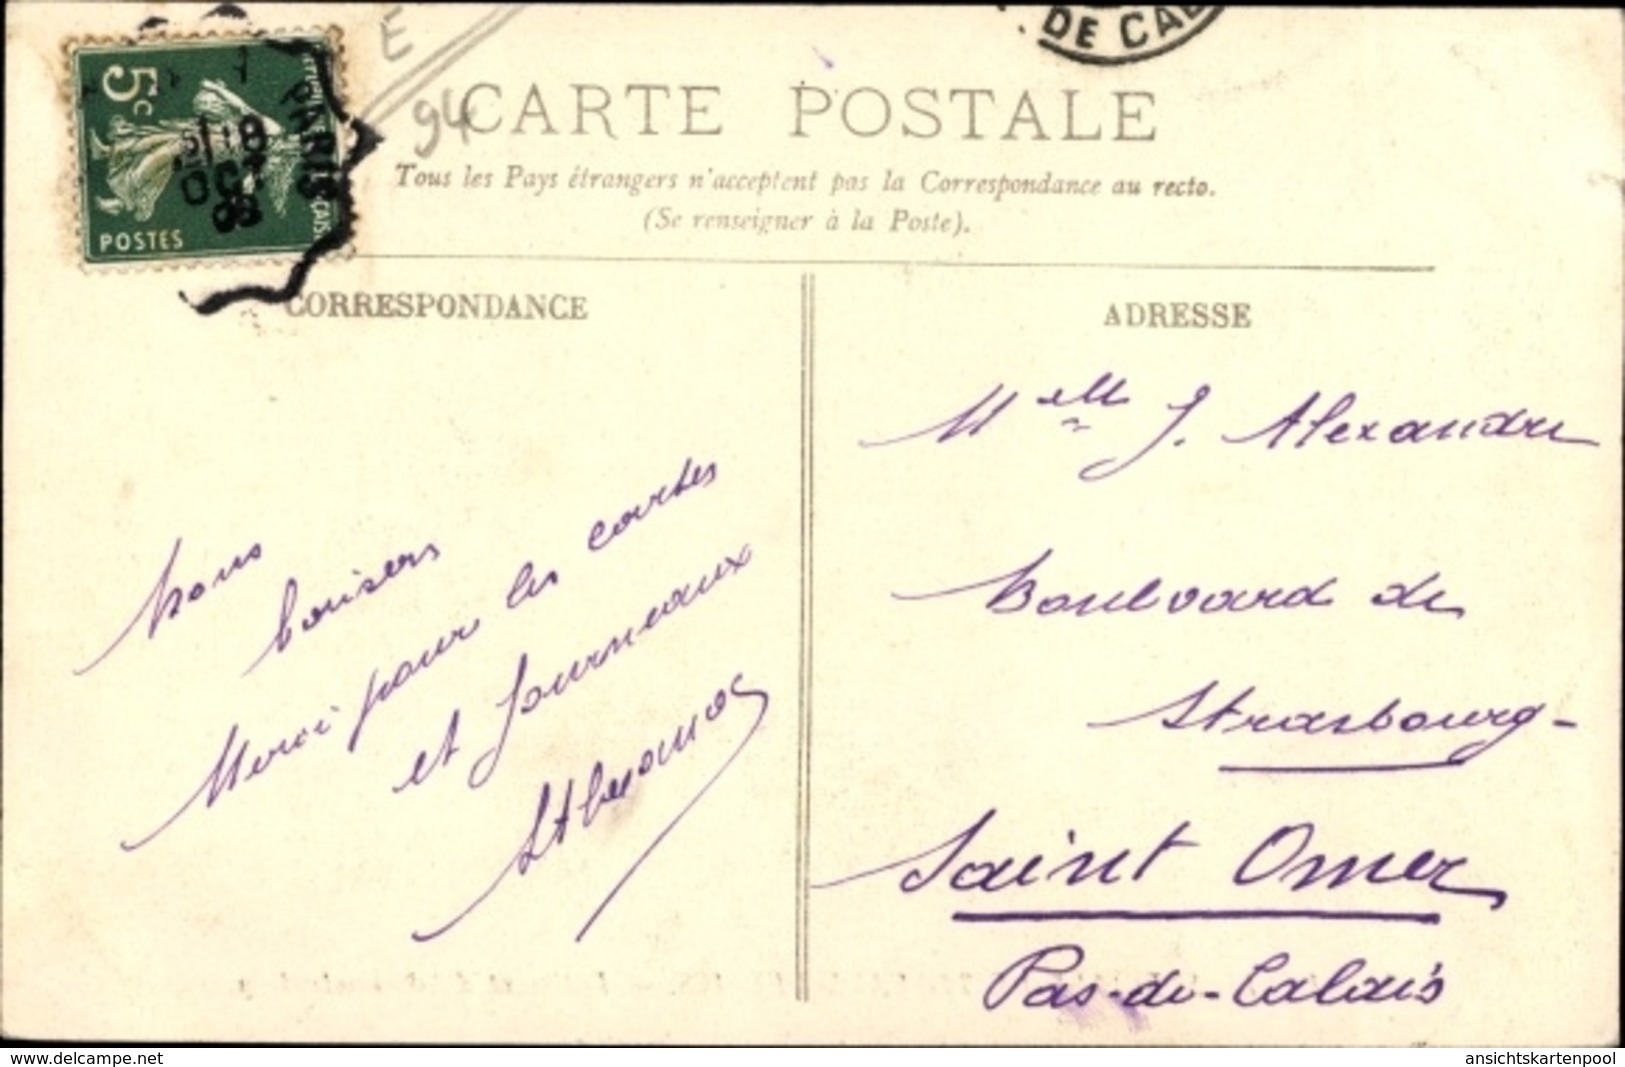 DE CAL
E
94
5c
POSTES
PARIS
OCT
08
CARTE POSTALE
Tous les Pays étrangers n'acceptent pas la Correspondance au recto.
(Se renseigner à la Poste).
CORRESPONDANCE
ADRESSE
Bons
baisers
Merci pour les cartes
et journeaux
Melle J. Alexandre
Boulevard de
Strasbourg-
Saint Omer
Pas-de-Calais
www.delcampe.net
ansichtskartenpool